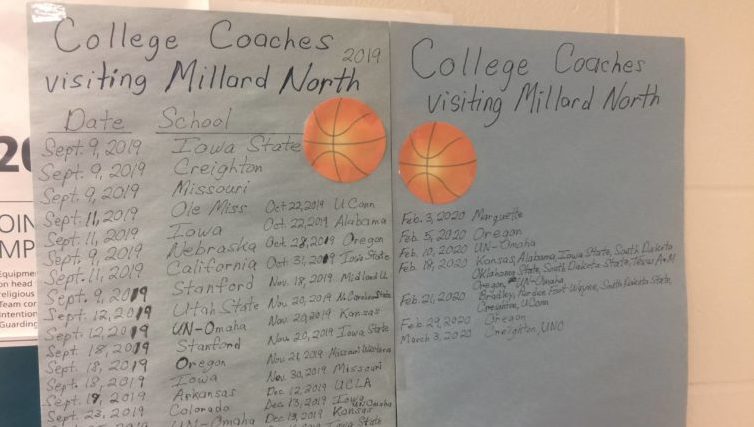 College Coaches 2019
visiting Millard North
Date School
Sept. 9, 2019 Iowa State
Sept. 9, 2019 Creighton
Sept. 9, 2019 Missouri
Sept. 11, 2019 Ole Miss
Sept. 11, 2019 Iowa
Sept. 9, 2019 Nebraska
Sept. 11, 2019 California
Sept. 9, 2019 Stanford
Sept. 12, 2019 Utah State
Sept. 12, 2019 UN-Omaha
Sept. 18, 2019 Stanford
Sept. 18, 2019 Oregon
Sept. 18, 2019 Iowa
Sept. 19, 2019 Arkansas
Sept. 23, 2019 Colorado
UN-Omaha
Oct 22, 2019 UConn
Oct. 22, 2019 Alabama
Oct. 28, 2019 Oregon
Oct 31, 2019 Iowa State
Nov. 18, 2019 Midland U.
Nov. 20, 2019
Nov. 20, 2019 Kansas
Nov. 20, 2019 Iowa State
Nov. 21, 2019 Missouri Western
Nov. 30, 2019 Missouri
Dec. 12, 2019 UCLA
Dec. 13, 2019 Iowa
UN Omaha
Dec. 13, 2019 Kansas
Iowa State
College Coaches
visiting Millard North
Feb. 3, 2020 Marquette
Feb. 5, 2020 Oregon
Feb. 10, 2020 UN-Omaha
Feb. 18, 2020 Kansas, Alabama, Iowa State, South Dakota
Oklahoma State, South Dakota State, Texas A+M
Oregon, UN-Omaha
Feb. 21, 2020 Bradley, Purdue Fort Wayne, South Dakota State,
Creighton, UConn
Feb. 29, 2020 Oregon
March 3, 2020 Creighton, UNO
20
OIN
MP
Equipme
on head
religious
Team cor
Intention
Guarding